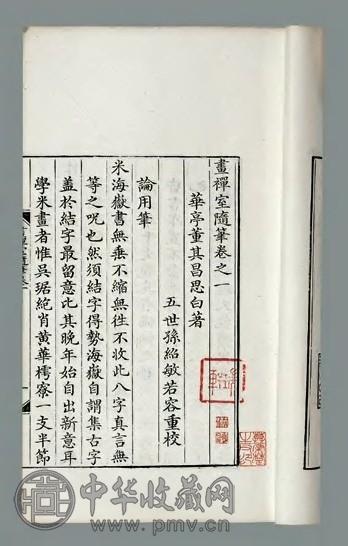 畫禪室隨筆卷之一
華亭董其昌思白著
五世孫紹敏若容重校
論用筆
米海嶽書無垂不縮無徃不收此八字真言無
等之呪也然須結字得勢海嶽自謂集古字
盖於結字最留意比其晚年始自出新意耳
學米畫者惟吳琚絶肖黄華樗寮一支半節
中华收藏网
www.pmv.cn